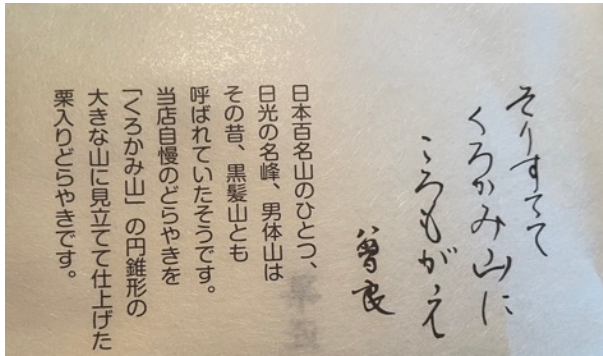 そりすてて
くろかみ山に
ころもがえ
曽良
日本百名山のひとつ、
日光の名峰、男体山は
その昔、黒髪山とも
呼ばれていたそうです。
当店自慢のどらやきを
「くろかみ山」の円錐形の
大きな山に見立てて仕上げた
栗入りどらやきです。